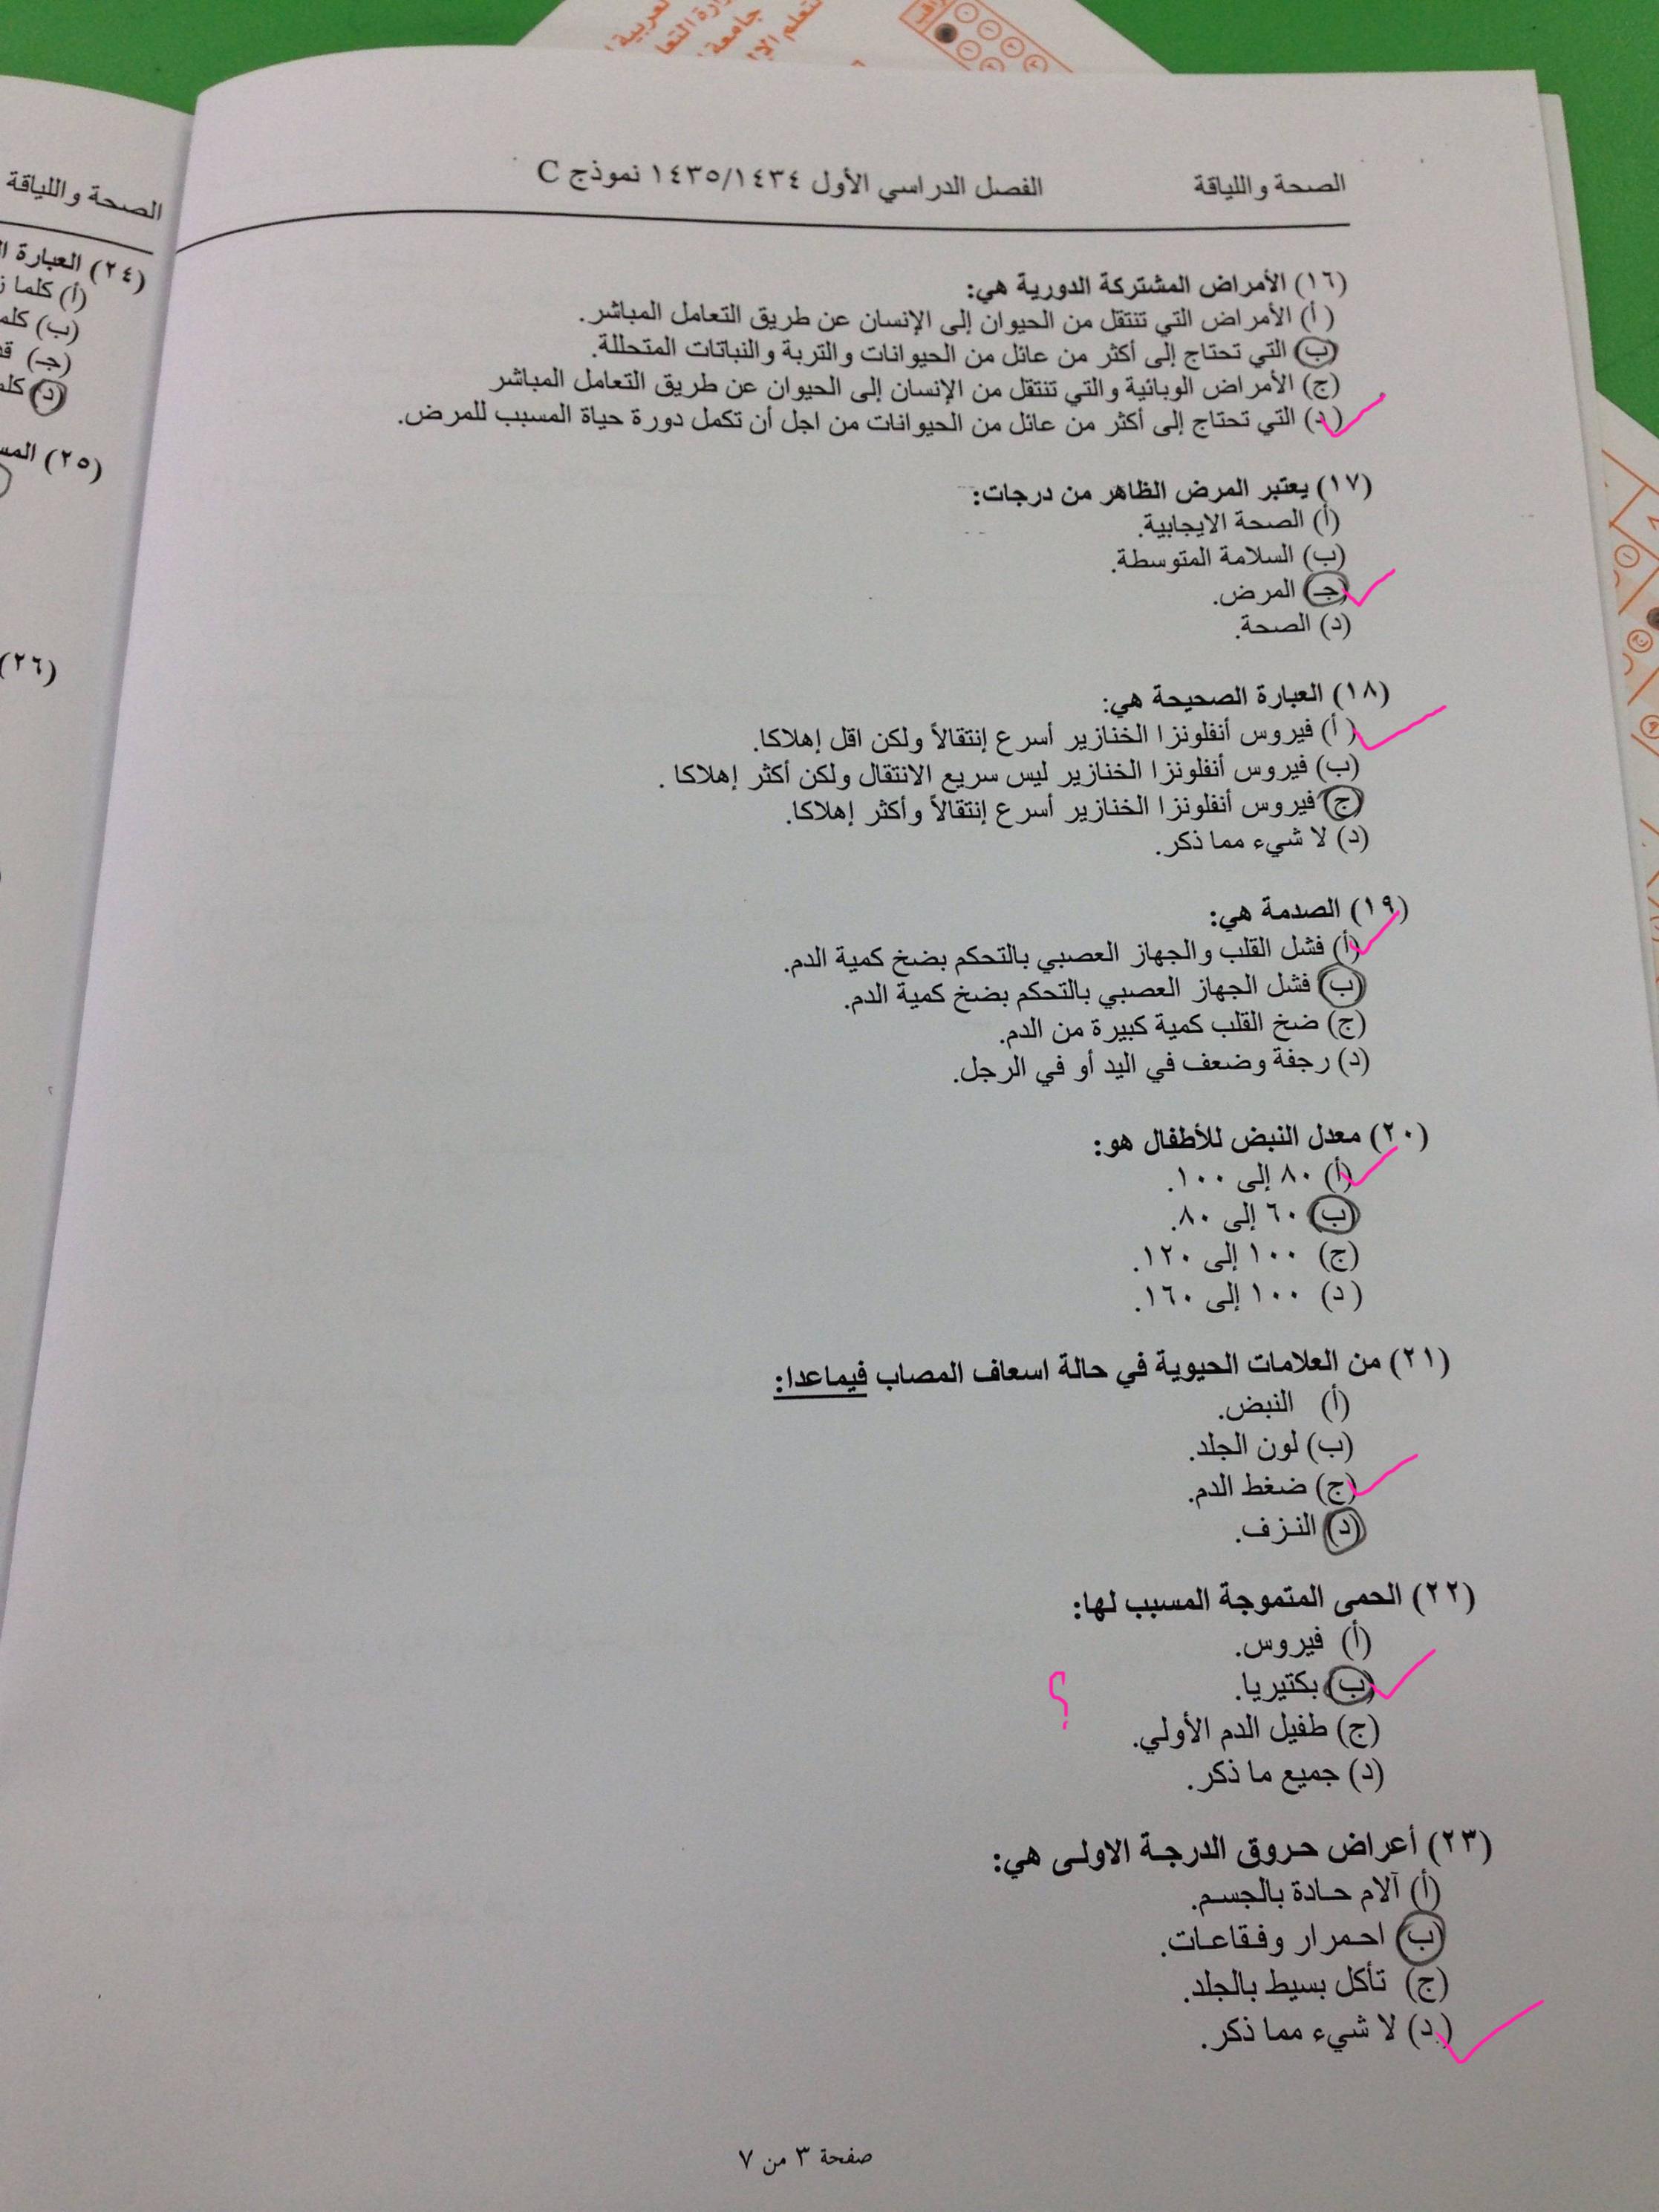 الصحة واللياقة
الفصل الدراسي الأول ١٤٣٥/١٤٣٤ نموذج C
(١٦) الأمراض المشتركة الدورية هي:
(أ) الأمراض التي تنتقل من الحيوان إلى الإنسان عن طريق التعامل المباشر.
(ب) التي تحتاج إلى أكثر من عائل من الحيوانات والتربة والنباتات المتحللة.
(ج) الأمراض الوبائية والتي تنتقل من الإنسان إلى الحيوان عن طريق التعامل المباشر
(د) التي تحتاج إلى أكثر من عائل من الحيوانات من اجل أن تكمل دورة حياة المسبب للمرض.
(١٧) يعتبر المرض الظاهر من درجات:
(أ) الصحة الايجابية.
(ب) السلامة المتوسطة.
(جـ) المرض.
(د) الصحة.
(١٨) العبارة الصحيحة هي:
(أ) فيروس أنفلونزا الخنازير أسرع إنتقالاً ولكن اقل إهلاكا.
(ب) فيروس أنفلونزا الخنازير ليس سريع الانتقال ولكن أكثر إهلاكا .
(ج) فيروس أنفلونزا الخنازير أسرع إنتقالاً وأكثر إهلاكا.
(د) لا شيء مما ذكر.
(١٩) الصدمة هي:
(أ) فشل القلب والجهاز العصبي بالتحكم بضخ كمية الدم.
(ب) فشل الجهاز العصبي بالتحكم بضخ كمية الدم.
(ج) ضخ القلب كمية كبيرة من الدم.
(د) رجفة وضعف في اليد أو في الرجل.
(٢٠) معدل النبض للأطفال هو:
(أ) ٨٠ إلى ١٠٠.
(ب) ٦٠ إلى ٨٠.
(ج) ١٠٠ إلى ١٢٠.
(د) ١٠٠ إلى ١٦٠.
(٢١) من العلامات الحيوية في حالة اسعاف المصاب فيماعدا:
(أ) النبض.
(ب) لون الجلد.
(ج) ضغط الدم.
(د) النزف.
(٢٢) الحمى المتموجة المسبب لها:
(أ) فيروس.
(ب) بكتيريا.
؟
(ج) طفيل الدم الأولي.
(د) جميع ما ذكر.
(٢٣) أعراض حروق الدرجة الاولى هي:
(أ) آلام حادة بالجسم.
(ب) احمرار وفقاعات.
(ج) تأكل بسيط بالجلد.
(د) لا شيء مما ذكر.
صفحة ٣ من ٧
الصحة واللياقة
(٢٤) العبارة
(أ) كلما
(ب)
(جـ)
(د)
(٢٥)
(٢٦)